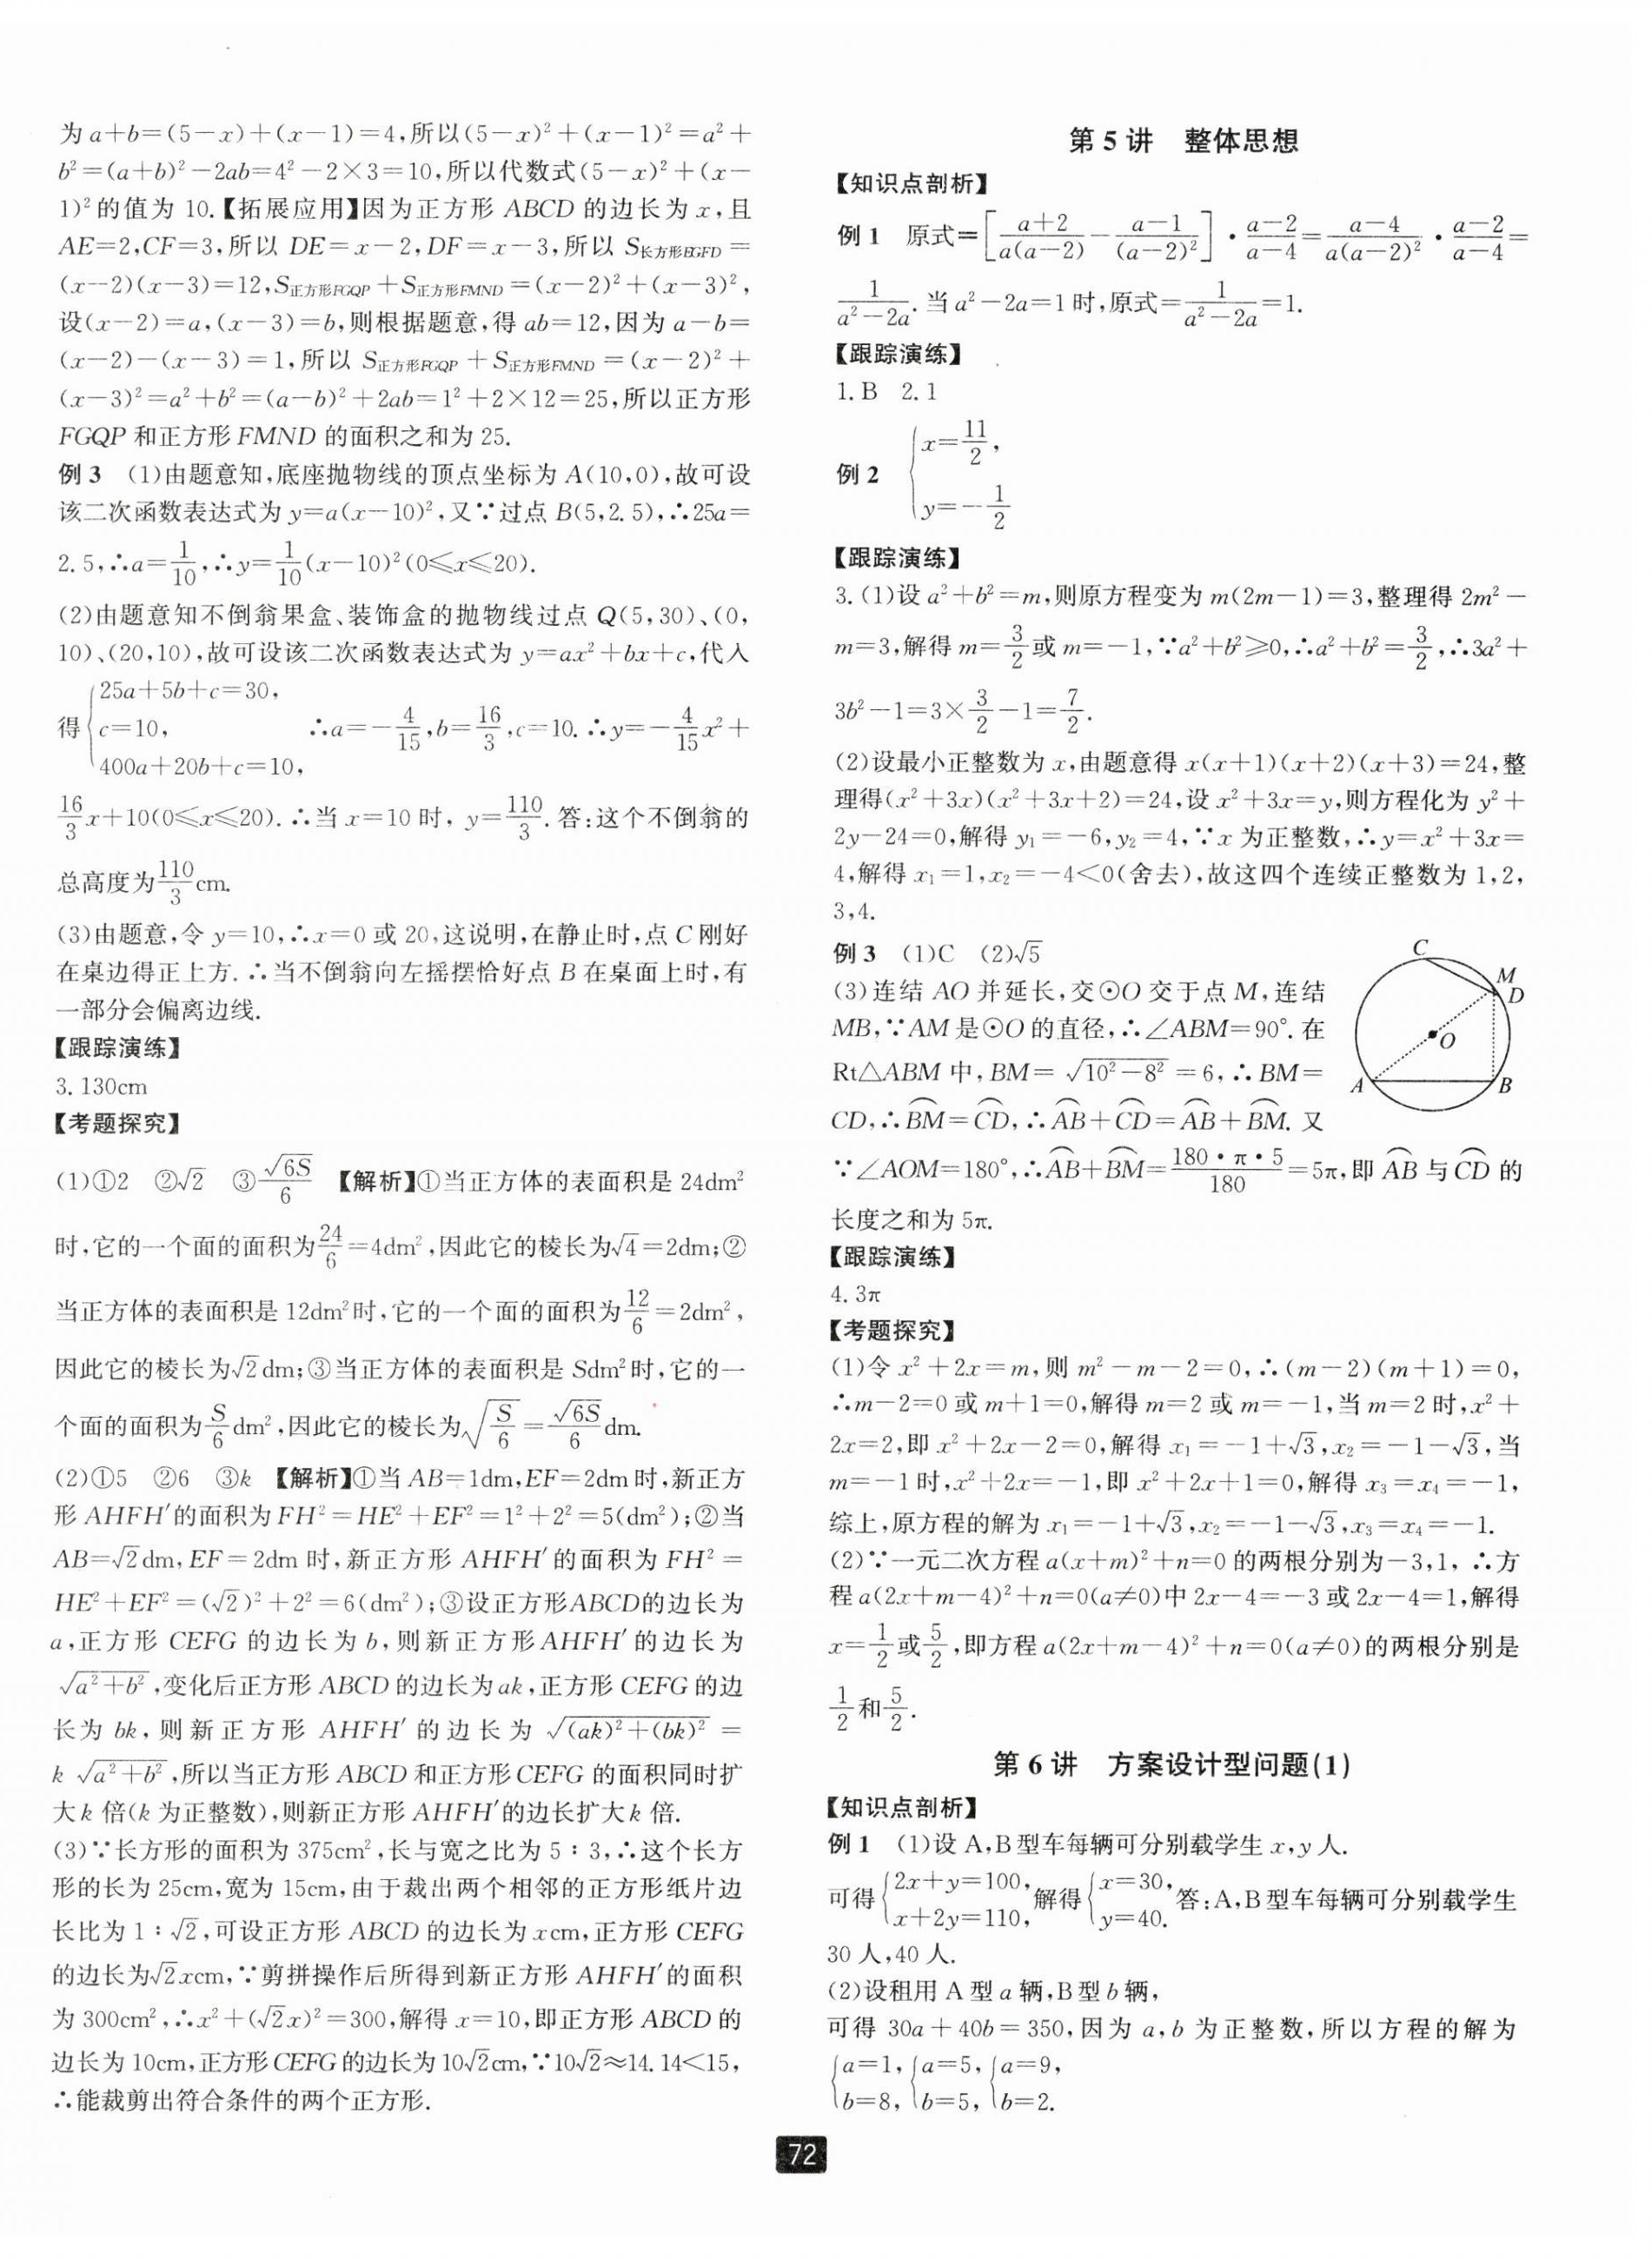 为 a+b=(5-x)+(x-1)=4,所以(5-x)²+(x-1)²=a²+
b²=(a+b)²-2ab=4²-2×3=10,所以代数式(5-x)²+(x-
1)²的值为 10.【拓展应用】因为正方形 ABCD 的边长为 x,且
AE=2,CF=3,所以 DE=x-2,DF=x-3,所以 S长方形EGFD=
(x-2)(x-3)=12,S正方形FGQP+S正方形FMND=(x-2)²+(x-3)²,
设(x-2)=a,(x-3)=b,则根据题意,得 ab=12,因为 a-b=
(x-2)-(x-3)=1,所以 S正方形FGQP+S正方形FMND=(x-2)²+
(x-3)²=a²+b²=(a-b)²+2ab=1²+2×12=25,所以正方形
FGQP 和正方形 FMND 的面积之和为 25.
例 3 (1)由题意知,底座抛物线的顶点坐标为 A(10,0),故可设
该二次函数表达式为 y=a(x-10)²,又∵过点 B(5,2.5),∴25a=
2.5,∴a=1/10,∴y=1/10(x-10)²(0≤x≤20).
(2)由题意知不倒翁果盒、装饰盒的抛物线过点 Q(5,30)、(0,
10)、(20,10),故可设该二次函数表达式为 y=ax²+bx+c,代入
得{25a+5b+c=30,
c=10,
400a+20b+c=10, ∴a=-4/15,b=16/3,c=10.∴y=-4/15x²+
16/3x+10(0≤x≤20).∴当 x=10 时, y=110/3.答:这个不倒翁的
总高度为110/3cm.
(3)由题意,令 y=10,∴x=0 或 20,这说明,在静止时,点 C 刚好
在桌边得正上方.∴当不倒翁向左摇摆恰好点 B 在桌面上时,有
一部分会偏离边线.
【跟踪演练】
3.130cm
【考题探究】
(1)①2 ②√2 ③√6S/6 【解析】①当正方体的表面积是 24dm²
时,它的一个面的面积为24/6=4dm²,因此它的棱长为√4=2dm;②
当正方体的表面积是 12dm²时,它的一个面的面积为12/6=2dm²,
因此它的棱长为√2dm;③当正方体的表面积是 Sdm²时,它的一
个面的面积为S/6dm²,因此它的棱长为√(S/6)=√6S/6dm.
(2)①5 ②6 ③k 【解析】①当 AB=1dm,EF=2dm 时,新正方
形 AHFH′的面积为 FH²=HE²+EF²=1²+2²=5(dm²);②当
AB=√2dm,EF=2dm 时,新正方形 AHFH′的面积为 FH²=
HE²+EF²=(√2)²+2²=6(dm²);③设正方形ABCD的边长为
a,正方形 CEFG 的边长为 b,则新正方形AHFH′的边长为
√(a²+b²),变化后正方形 ABCD 的边长为 ak,正方形 CEFG 的边
长为 bk,则新正方形 AHFH′的边长为 √((ak)²+(bk)²)=
k √(a²+b²),所以当正方形 ABCD 和正方形 CEFG 的面积同时扩
大 k 倍(k 为正整数),则新正方形 AHFH′的边长扩大 k 倍.
(3)∵长方形的面积为 375cm²,长与宽之比为 5∶3,∴这个长方
形的长为 25cm,宽为 15cm,由于裁出两个相邻的正方形纸片边
长比为 1∶√2,可设正方形 ABCD 的边长为 xcm,正方形 CEFG
的边长为√2xcm,∵剪拼操作后所得到新正方形 AHFH′的面积
为 300cm²,∴x²+(√2x)²=300,解得 x=10,即正方形 ABCD 的
边长为 10cm,正方形 CEFG 的边长为 10√2cm,∵10√2≈14.14<15,
∴能裁剪出符合条件的两个正方形.
第 5 讲 整体思想
【知识点剖析】
例 1 原式=[(a+2)/(a(a-2))-(a-1)/(a-2)²]·(a-2)/(a-4)=(a-4)/(a(a-2)²)·(a-2)/(a-4)=
1/(a²-2a).当 a²-2a=1 时,原式=1/(a²-2a)=1.
【跟踪演练】
1.B 2.1
例 2 {x=11/2,
y=-1/2
【跟踪演练】
3.(1)设 a²+b²=m,则原方程变为 m(2m-1)=3,整理得 2m²-
m=3,解得 m=3/2或 m=-1,∵a²+b²≥0,∴a²+b²=3/2,∴3a²+
3b²-1=3×3/2-1=7/2.
(2)设最小正整数为 x,由题意得 x(x+1)(x+2)(x+3)=24,整
理得(x²+3x)(x²+3x+2)=24,设 x²+3x=y,则方程化为 y²+
2y-24=0,解得 y₁=-6,y₂=4,∵x 为正整数,∴y=x²+3x=
4,解得 x₁=1,x₂=-4<0(舍去),故这四个连续正整数为 1,2,
3,4.
例 3 (1)C (2)√5
(3)连结 AO 并延长,交⊙O 交于点 M,连结
MB,∵AM 是⊙O 的直径,∴∠ABM=90°.在
Rt△ABM 中,BM= √(10²-8²)=6,∴BM=
CD,∴⌒BM=⌒CD,∴⌒AB+⌒CD=⌒AB+⌒BM.又
∵∠AOM=180°,∴⌒AB+⌒BM=180·π·5/180=5π,即 ⌒AB 与 ⌒CD 的
长度之和为 5π.
C
M
D
O
A
B
【跟踪演练】
4.3π
【考题探究】
(1)令 x²+2x=m,则 m²-m-2=0,∴(m-2)(m+1)=0,
∴m-2=0 或 m+1=0,解得 m=2 或 m=-1,当 m=2 时,x²+
2x=2,即 x²+2x-2=0,解得 x₁=-1+√3,x₂=-1-√3,当
m=-1 时,x²+2x=-1,即 x²+2x+1=0,解得 x₃=x₄=-1,
综上,原方程的解为 x₁=-1+√3,x₂=-1-√3,x₃=x₄=-1.
(2)∵一元二次方程 a(x+m)²+n=0 的两根分别为-3,1, ∴方
程 a(2x+m-4)²+n=0(a≠0)中 2x-4=-3 或 2x-4=1,解得
x=1/2或5/2,即方程 a(2x+m-4)²+n=0(a≠0)的两根分别是
1/2和5/2.
第 6 讲 方案设计型问题(1)
【知识点剖析】
例 1 (1)设 A,B 型车每辆可分别载学生 x,y 人.
可得{2x+y=100,
x+2y=110,解得{x=30,
y=40.答:A,B 型车每辆可分别载学生
30 人,40 人.
(2)设租用 A 型 a 辆,B 型 b 辆,
可得 30a+40b=350,因为 a,b 为正整数,所以方程的解为
{a=1, {a=5, {a=9,
b=8, b=5, b=2.
72